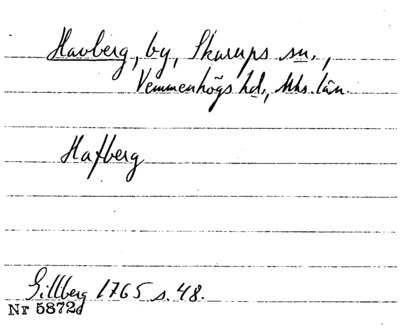 Havberg, by, Skurups sn.,
Vemmenhögs hd., Mhs. län
Hafberg
Gillberg 1765 s. 48.
Nr 5872d